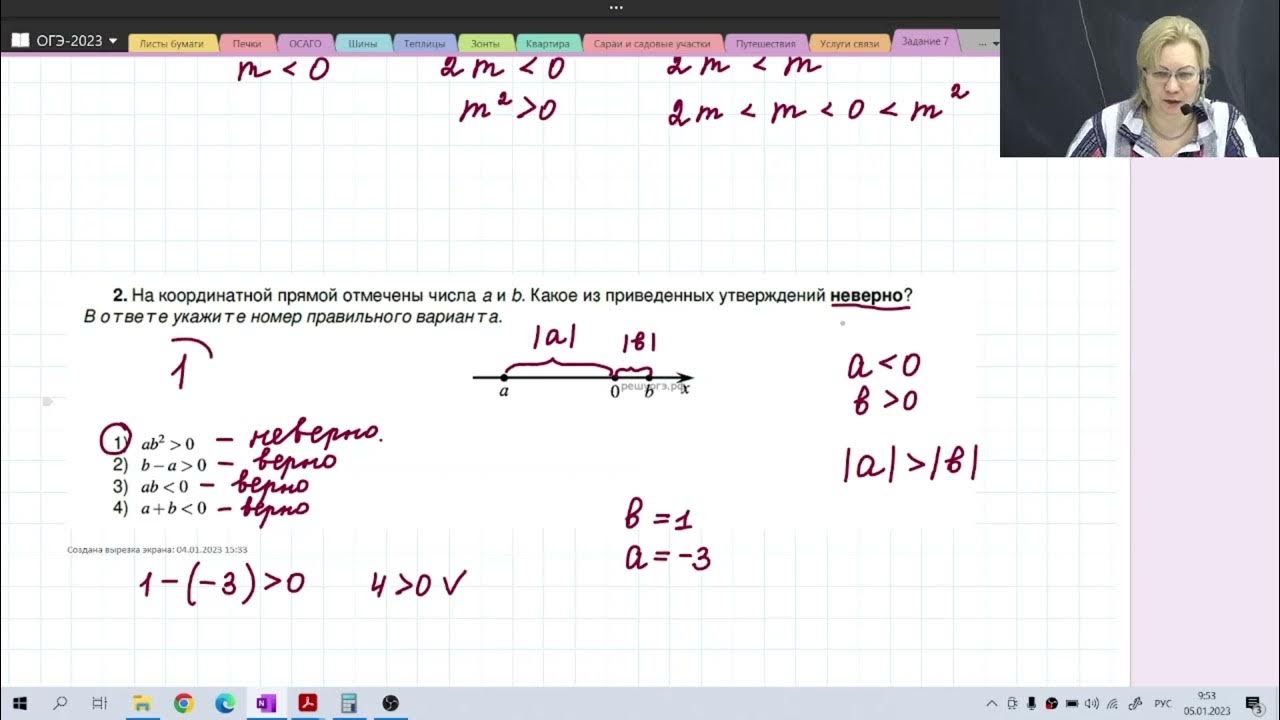 ...
ОГЭ-2023
Листы бумаги Печки ОСАГО Шины Теплицы Зонты Квартира Сараи и садовые участки Путешествия Услуги связи Задание 7 ...
m < 0 2m < 0 2m < m
m² > 0 2m < m < 0 < m²
2. На координатной прямой отмечены числа a и b. Какое из приведенных утверждений неверно?
В ответе укажите номер правильного варианта.
1
|a| |в|
a 0 b x
решуогэ.рф
a < 0
в > 0
|a| > |в|
1) ab² > 0 – неверно.
2) b − a > 0 – верно
3) ab < 0 – верно
4) a + b < 0 – верно
в = 1
a = -3
Создана вырезка экрана: 04.01.2023 15:33
1 - (-3) > 0 4 > 0 ✓
РУС
9:53
05.01.2023
3